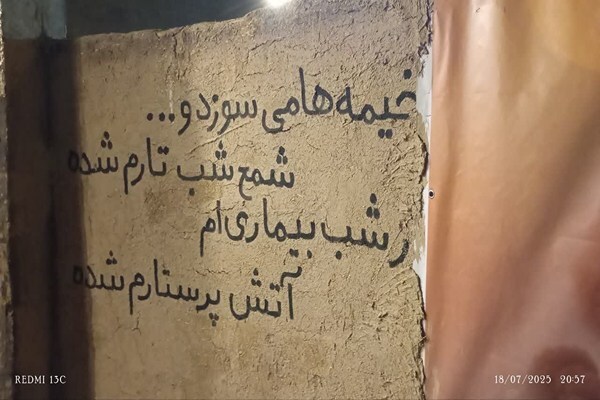 خیمه‌ها می سوزد و...
شمع شب تارم شده
رشب بیماری ام
آتش پرستارم شده
REDMI 13C
18/07/2025 20:57